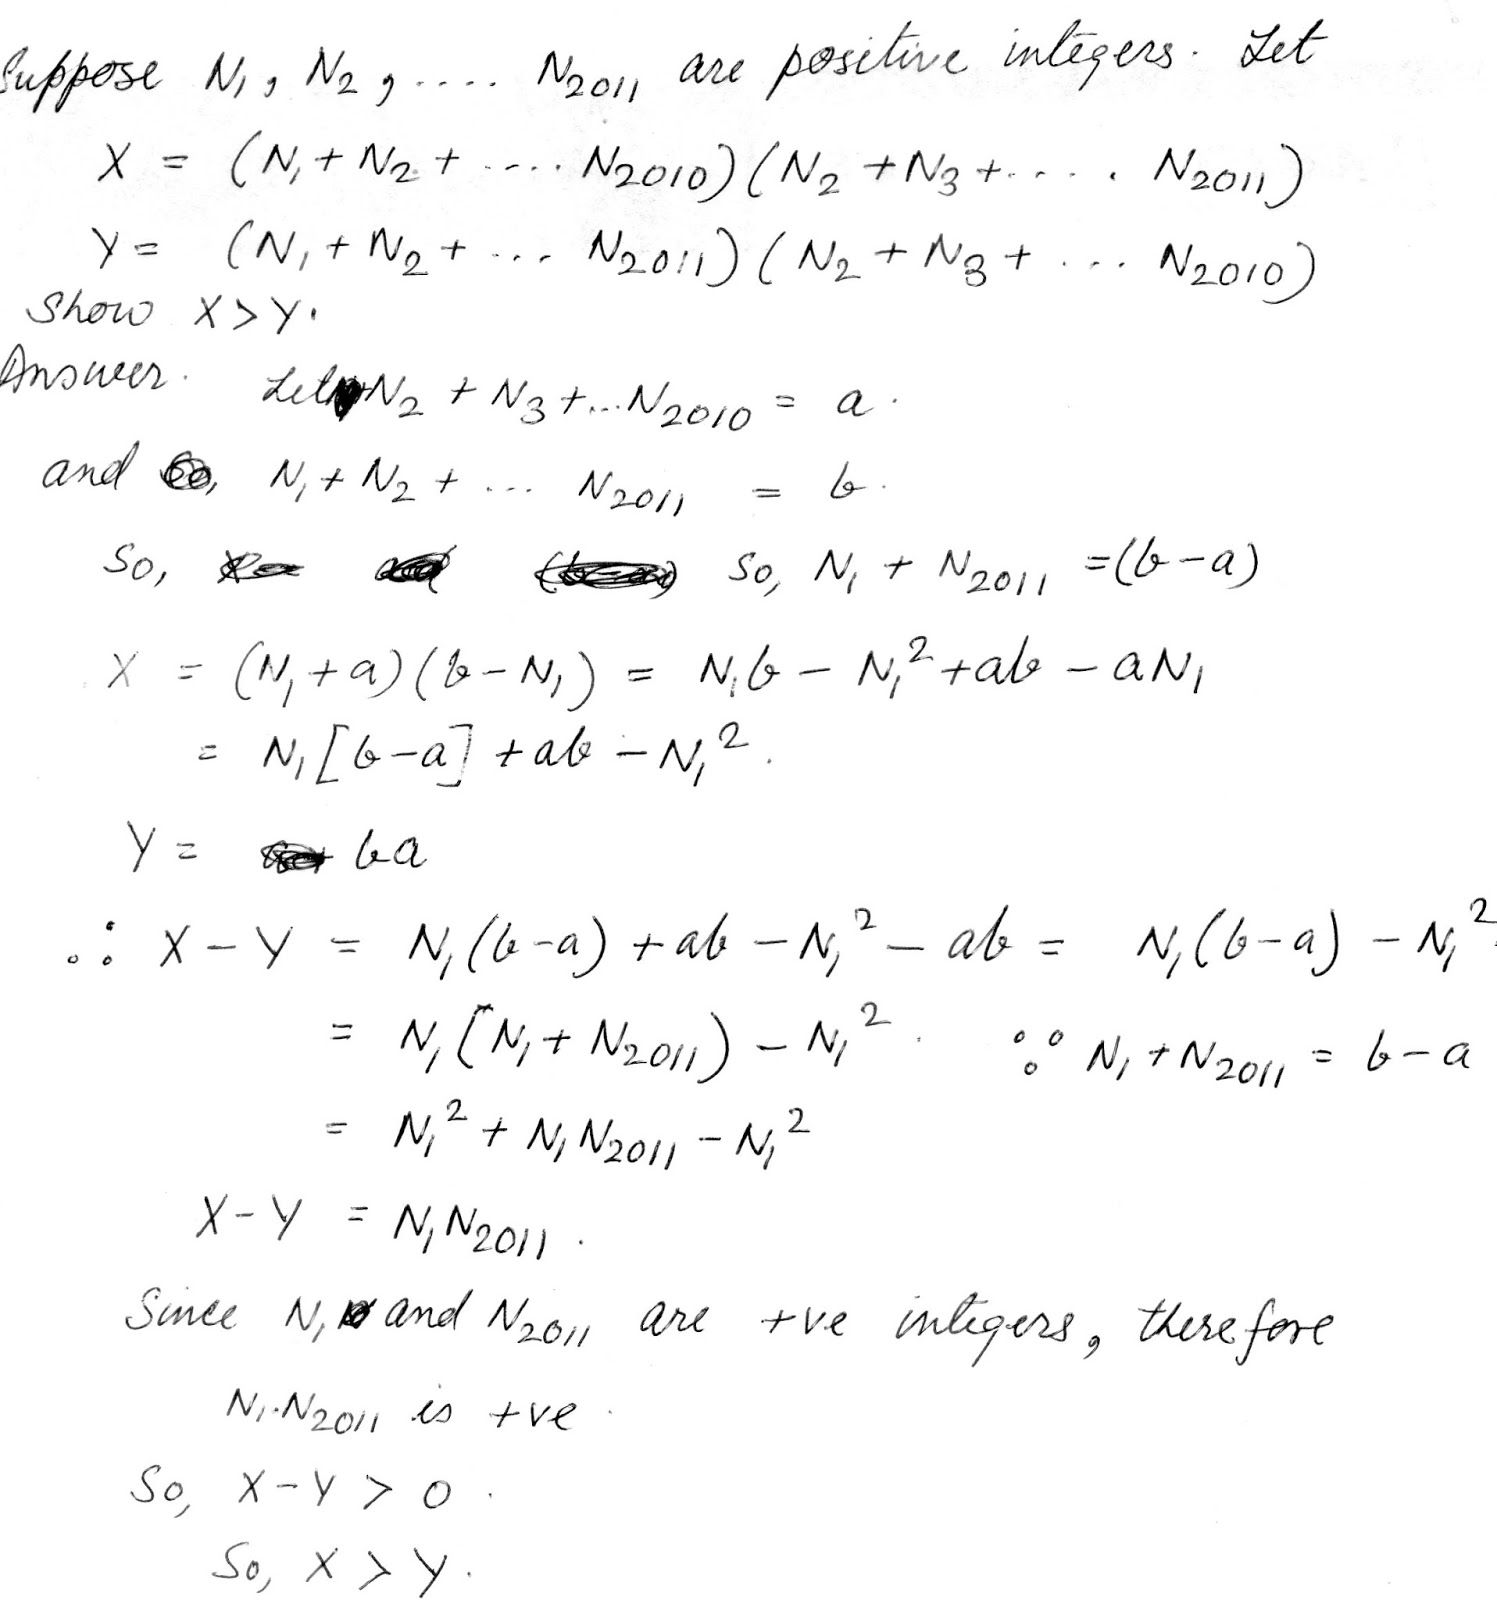 Suppose N₁, N₂, .... N₂₀₁₁ are positive integers. Let
X = (N₁ + N₂ + .... N₂₀₁₀) (N₂ + N₃ + .... N₂₀₁₁)
Y = (N₁ + N₂ + ... N₂₀₁₁) (N₂ + N₃ + ... N₂₀₁₀)
Show X > Y.
Answer. Let N₂ + N₃ + ... N₂₀₁₀ = a.
and N₁ + N₂ + ... N₂₀₁₁ = b.
So, So, N₁ + N₂₀₁₁ = (b - a)
X = (N₁ + a) (b - N₁) = N₁b - N₁² + ab - aN₁
= N₁[b - a] + ab - N₁².
Y = ba
∴ X - Y = N₁(b - a) + ab - N₁² - ab = N₁(b - a) - N₁².
= N₁(N₁ + N₂₀₁₁) - N₁². ∵ N₁ + N₂₀₁₁ = b - a
= N₁² + N₁N₂₀₁₁ - N₁²
X - Y = N₁N₂₀₁₁.
Since N₁ and N₂₀₁₁ are +ve integers, therefore
N₁.N₂₀₁₁ is +ve.
So, X - Y > 0.
So, X > Y.